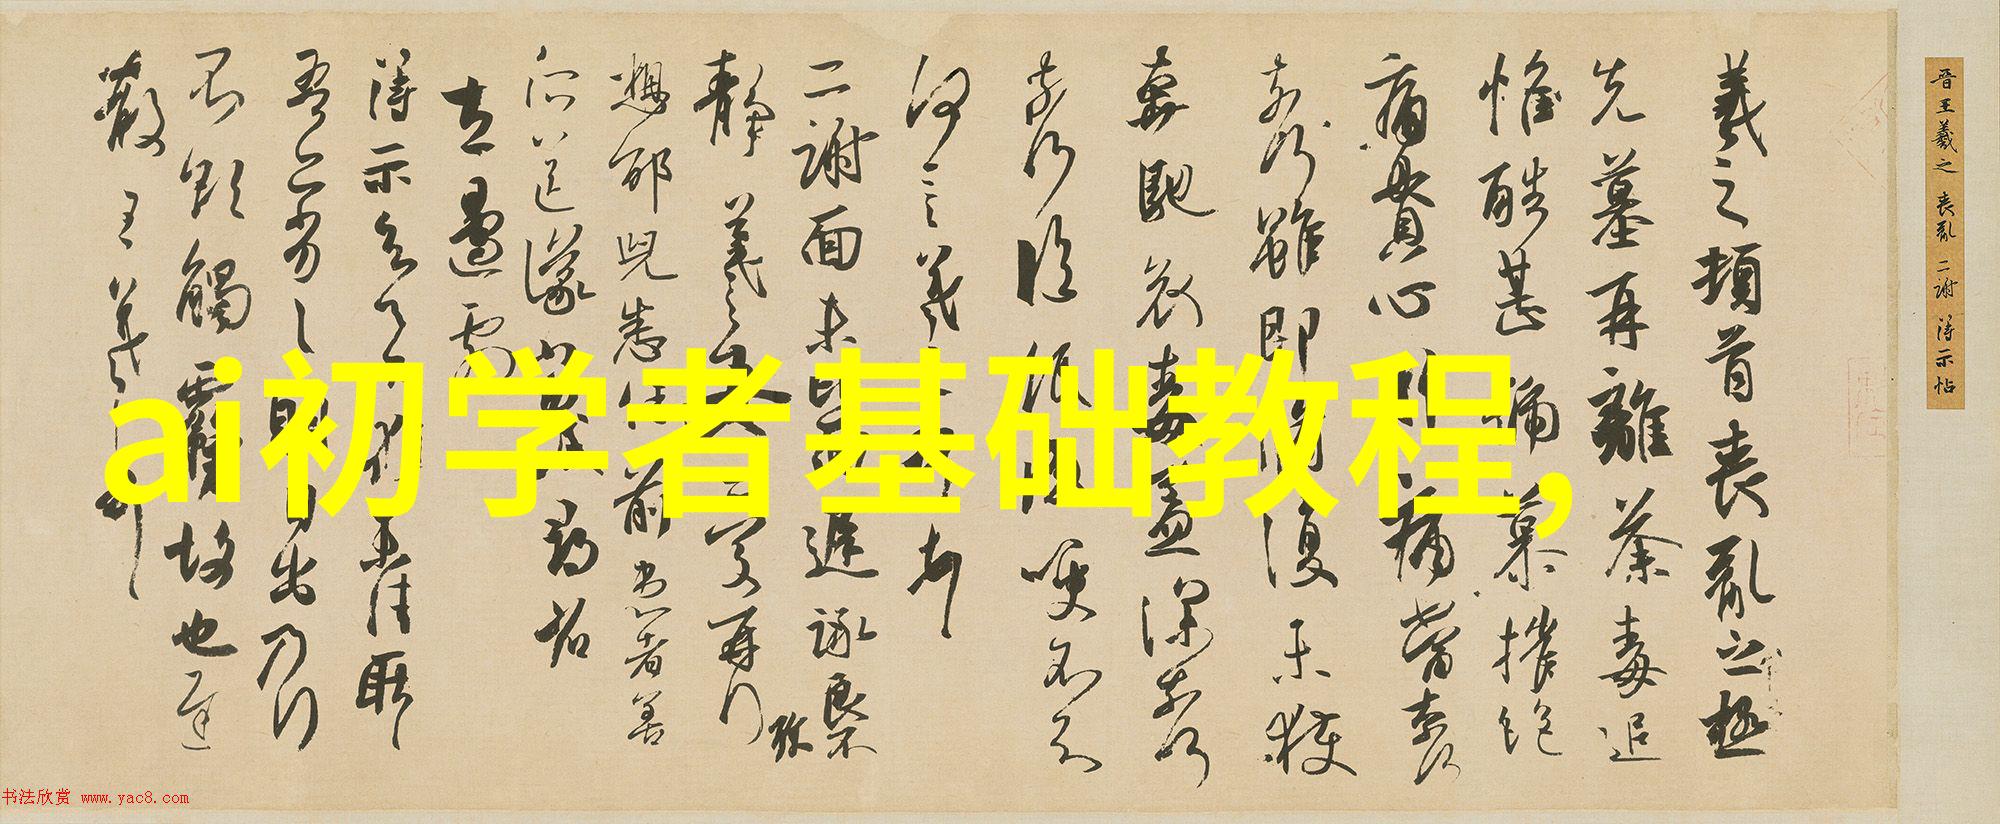 晉王羲之 喪亂 二謝 得示帖
羲之頓首喪亂之極
先墓再離荼毒追
惟酷甚號慕摧絕
痛貫心肝痛當奈何
奈何雖即脩復未獲
奔馳哀毒益深奈何
奈何臨紙感哽不知
何言羲之頓首頓首
二謝面未比面遲詠良不
靜羲之女愛再拜
想邵兒悉佳前患者善
所送議當試尋省
左邊劇
得示知足下猶未佳耿耿
吾亦劣劣明日出乃行
不欲觸霧故也遲
散王羲之頓首
ai初学者基础教程,
书法欣赏 www.yac8.com